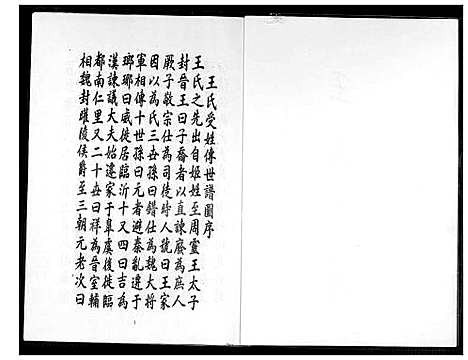 王氏受姓傳世譜圖序
王氏之先出自姬姓至周靈王太子
封晉王曰子喬者以直諫廢為庶人
厥子敬宗仕為司徒時人號曰王家
因以為氏三世孫曰錯仕為魏大將
軍相傳十世孫曰元者避秦亂遷于
瑯瑘曰威徙居臨沂十又四曰吉為
漢諫議大夫始遷家于臯虞後徙臨
都南仁里又二十世曰祥為晉室輔
相魏封睢陵侯爵至三朝元老次曰
1